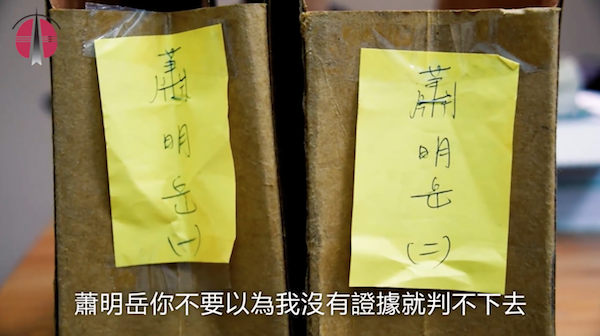 蕭明岳(一)
蕭明岳(二)
蕭明岳你不要以為我沒有證據就判不下去